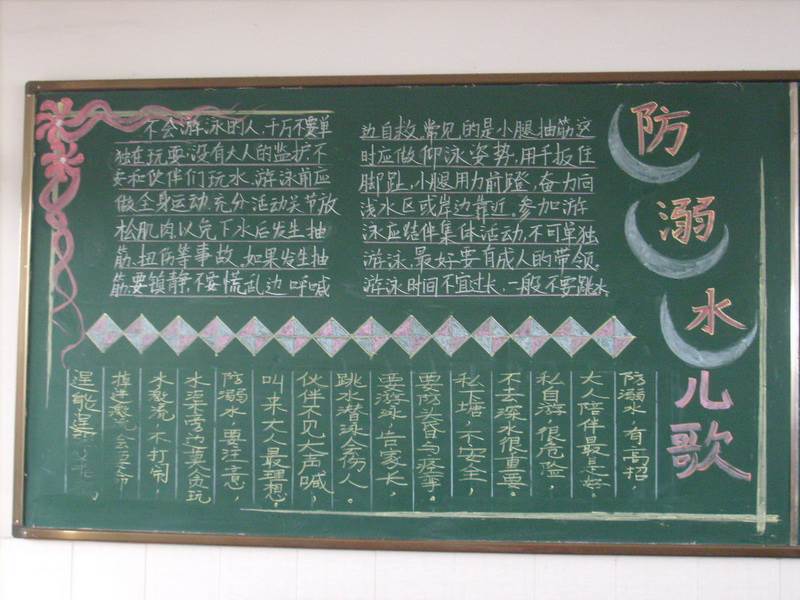 防溺水儿歌
不会游泳的人，千万不要单
独在玩耍，没有大人的监护，不
要和伙伴们玩水。游泳前应
做全身运动，充分活动关节，放
松肌肉，以免下水后发生抽
筋、扭伤等事故。如果发生抽
筋，要镇静，不要慌乱，边呼喊
边自救。常见的是小腿抽筋，这
时应做仰泳姿势，用手扳住
脚趾，小腿用力前蹬，奋力向
浅水区或岸边靠近。参加游
泳应结伴集体活动，不可单独
游泳，最好要自成人的带领。
游泳时间不宜过长，一般不要跳水
防溺水，有高招，
大人陪伴最是好。
私自游，很危险，
不去深水很重要。
私下塘，不安全，
要防头昏与痉挛。
要游泳，告家长，
跳水潜泳会伤人。
伙伴不见大声喊，
叫来大人最理想，
防溺水，要注意，
水深旁边莫贪玩
水激流，不打闹，
逞能